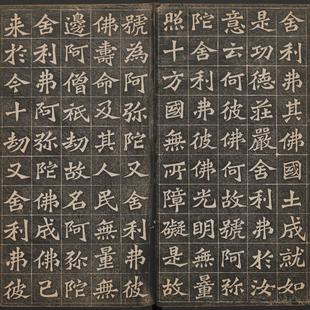 舍利弗其佛國土成就如
是功德莊嚴舍利弗於汝
意云何彼佛何故號阿彌
陀舍利弗彼佛光明無量
照十方國無所障礙是故
號為阿弥陀又舍利弗彼
佛壽命及其人民無量無
邊阿僧祇劫故名阿弥陀
舍利弗阿弥陀佛成佛已
来於今十劫又舍利弗彼